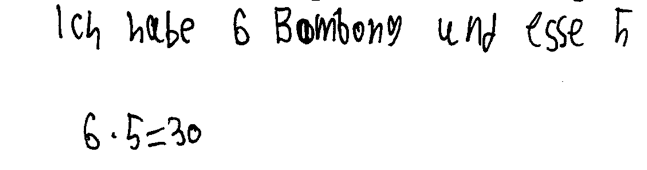 Ich habe 6 Bombong und esse 5
6·5=30